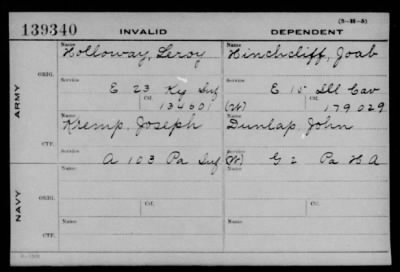 (3-H-5)
139340 INVALID DEPENDENT
Name Name
Holloway, Leroy Hinchcliff, Joab
ORIG.
Service Service
E 23 Ky Inf E 15 Ill Cav
Ctf. Ctf.
134601 (W) 179029
ARMY
Name Name
Kremp, Joseph Dunlap, John
CTF.
Service Service
A 103 Pa Inf (W) G 2 Pa H A
Name Name
ORIG.
Service Ctf. Service Ctf.
NAVY
Name Name
CTF.
Service Service